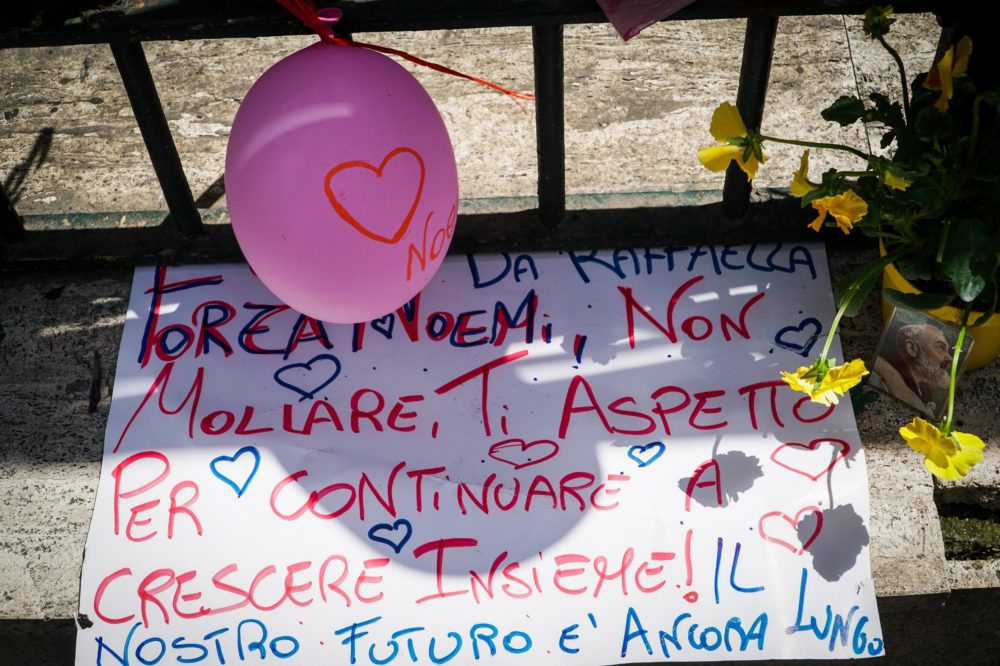 NOE
DA RAFFAELLA
FORZA NOEMI, NON
MOLLARE, TI ASPETTO
PER CONTINUARE A
CRESCERE INSIEME! IL
NOSTRO FUTURO E' ANCORA LUNGO